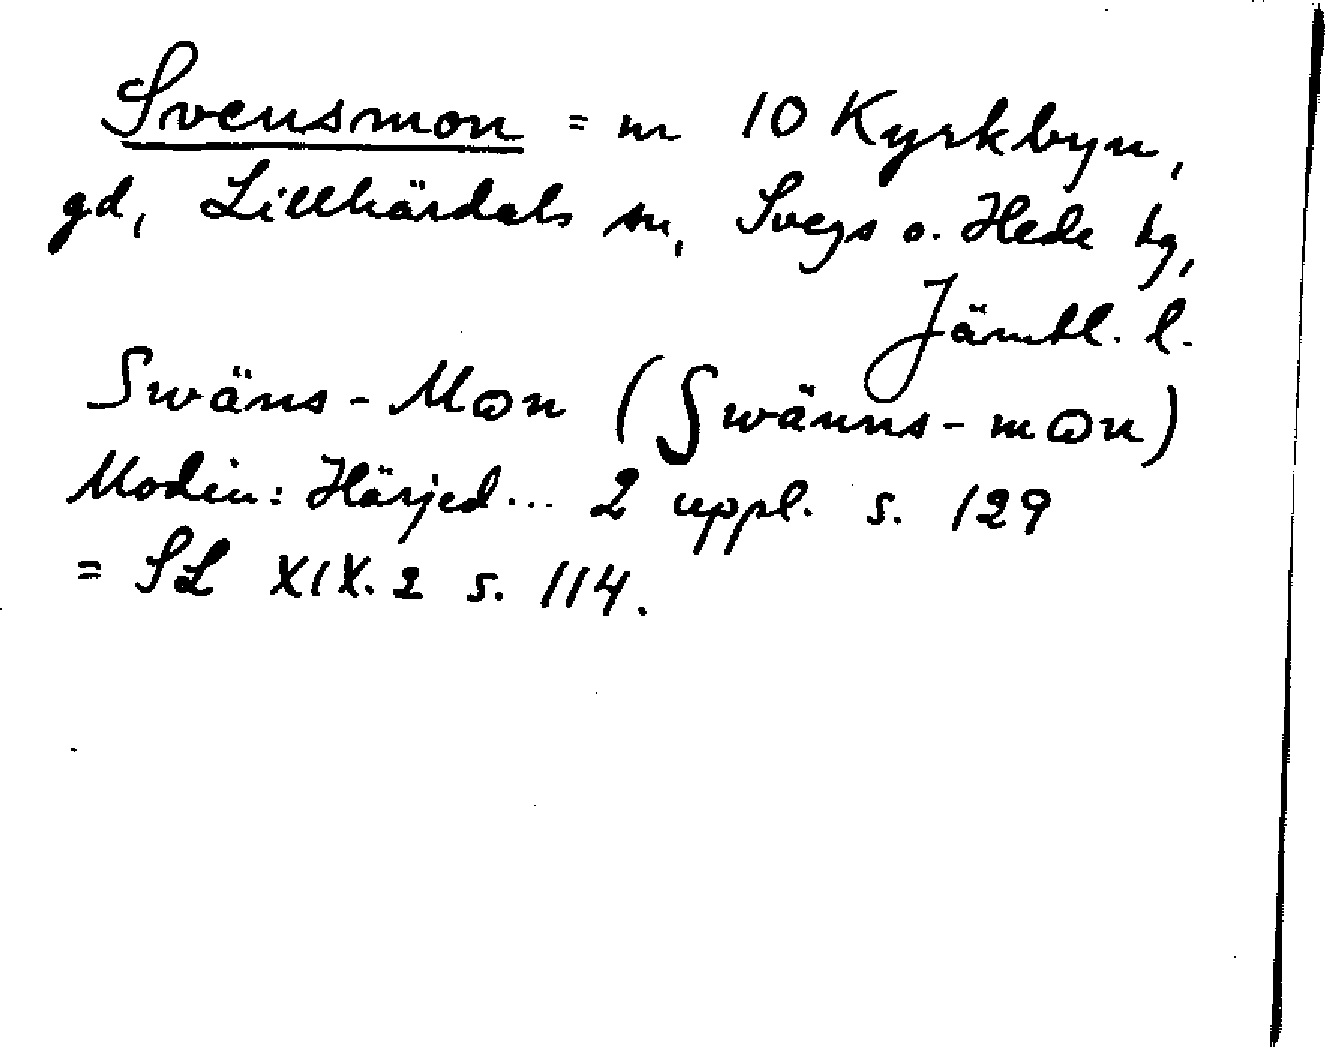 Svensmon = nr 10 Kyrkbyn,
gd, Lillhärdals sn, Svegs o. Hede tg,
Jämtl. l.
Swäns-Mon (Swänns-mon)
Modin: Härjed... 2 uppl. s. 129
= SL XIX.2 s. 114.